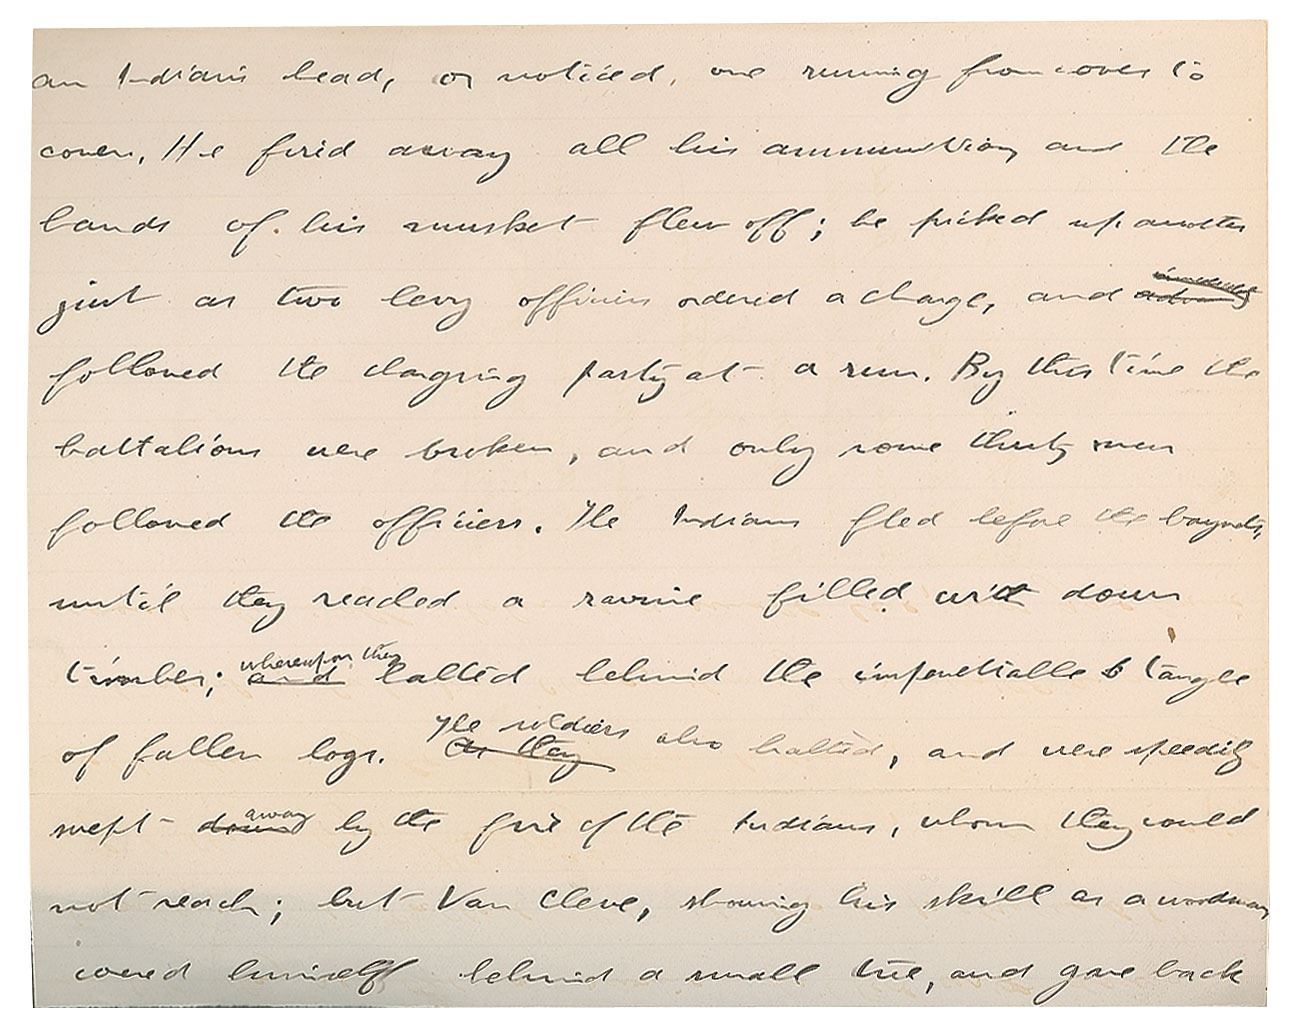 an Indian's head, or noticed, one running from cover to
cover. He fired away all his ammunition, and the
bands of his musket flew off; he picked up another
just as two levy officers ordered a charge, and
followed the charging party at a run. By this time the
battalions were broken, and only some thirty men
followed the officers. The Indians fled before the bayonets,
until they reached a ravine filled with down
timber; and whereupon they halted behind the impenetrable tangle
of fallen logs. As they The soldiers also halted, and were speedily
swept down away by the fire of the Indians, whom they could
not reach; but Van Cleve, showing his skill as a woodsman,
covered himself behind a small tree, and gave back